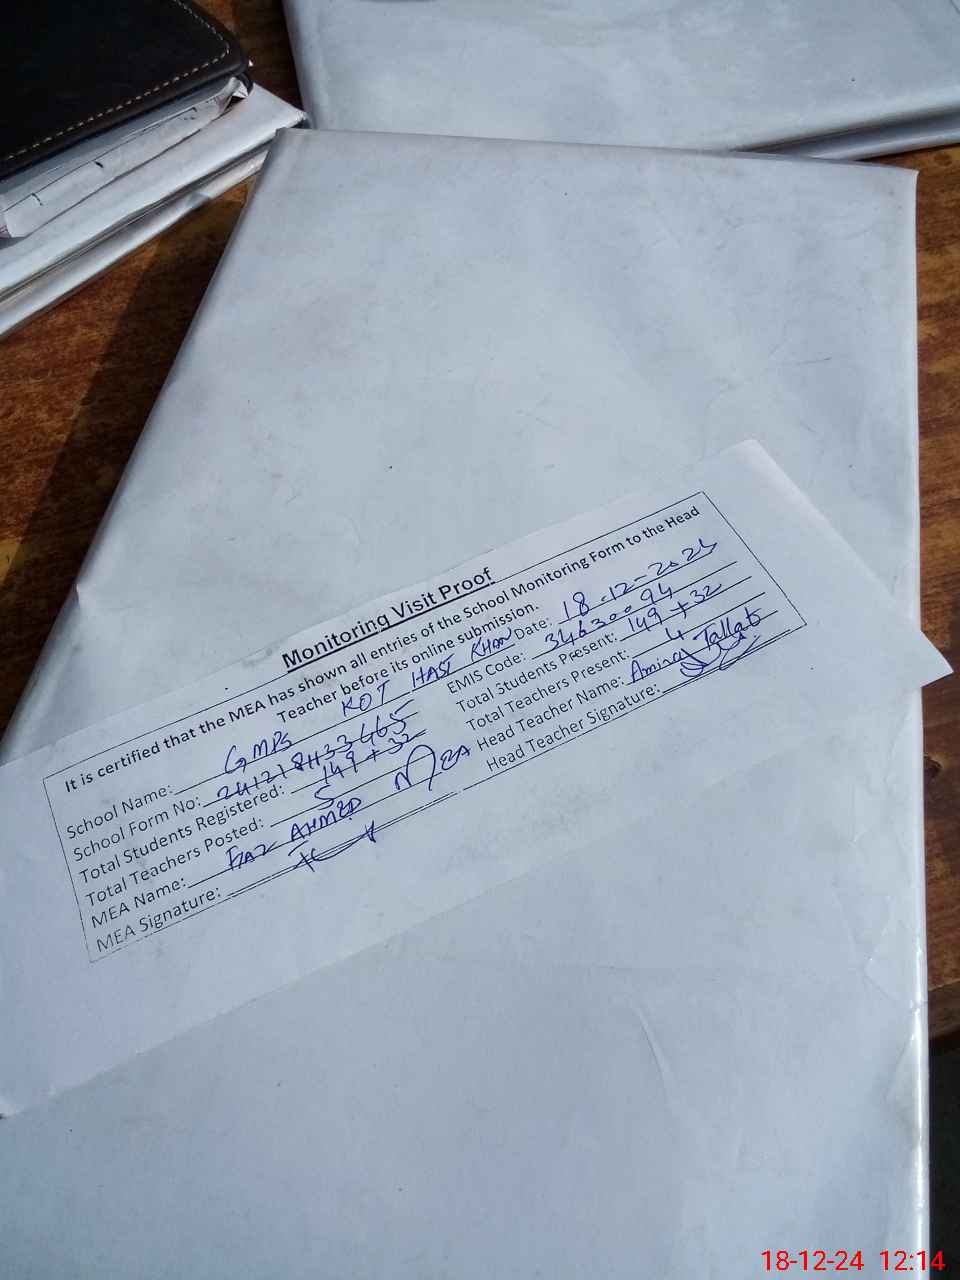 Monitoring Visit Proof
It is certified that the MEA has shown all entries of the School Monitoring Form to the Head
Teacher before its online submission.
School Name: GMPS KOT HAST KHAN Date: 18-12-2024
School Form No: EMIS Code: 34630094
Total Students Registered: 149 + 32 Total Students Present: 149 + 32
Total Teachers Posted: 5 Total Teachers Present: 4
MEA Name: AHMED MEA Head Teacher Name: Amina Tallat
MEA Signature: Head Teacher Signature:
18-12-24 12:14